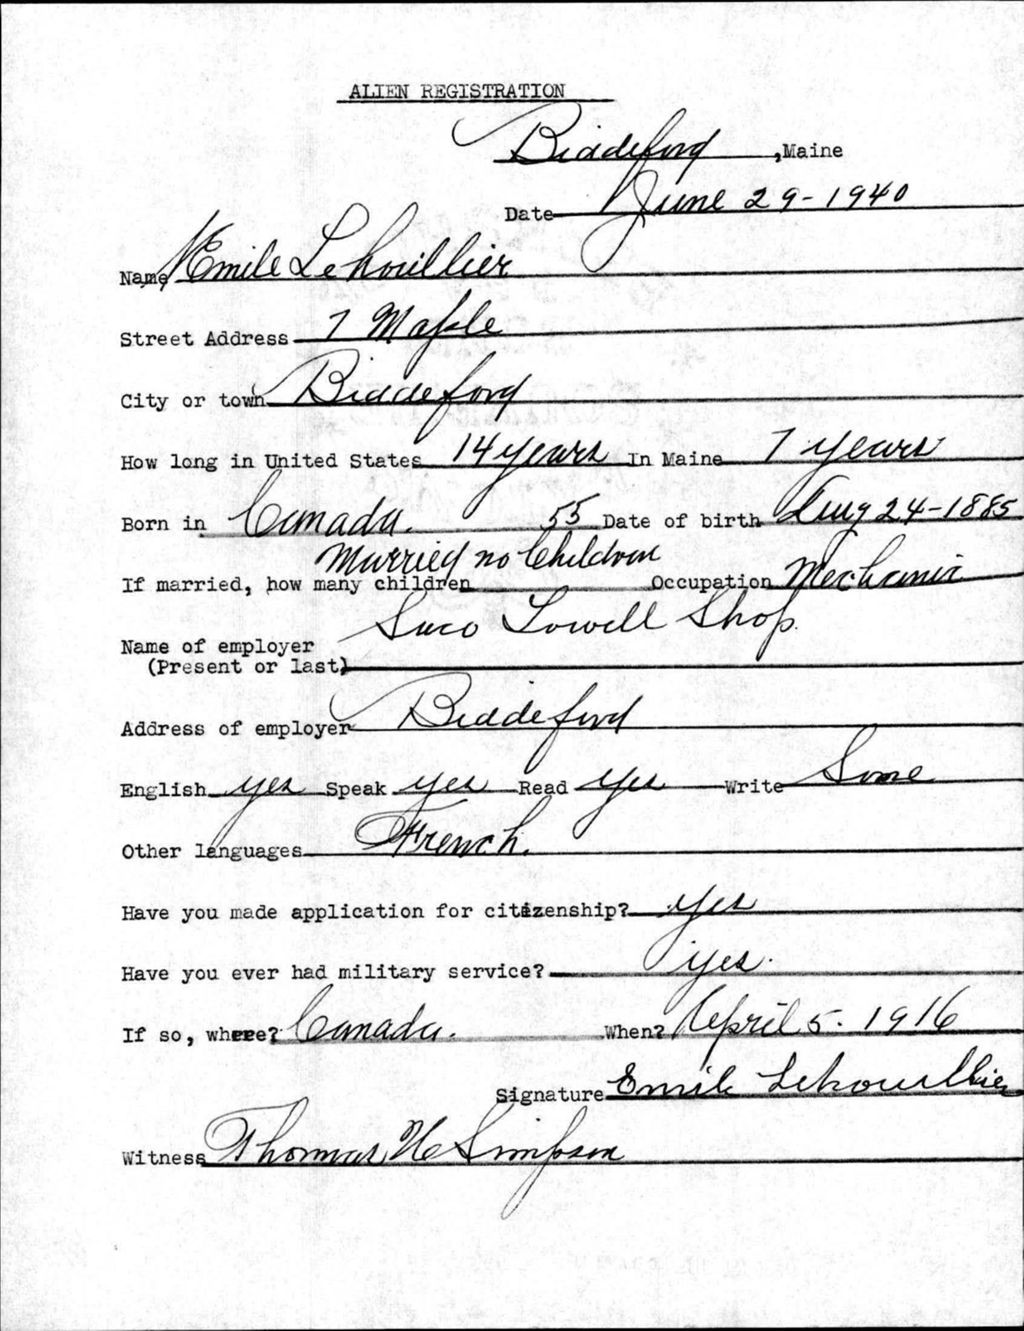 ALIEN REGISTRATION
Biddeford, Maine
Date June 29-1940
Name Emile Lehoullier
Street Address 7 Maple
City or town Biddeford
How long in United States 14 years In Maine 7 years
Born in Canada. 55 Date of birth Aug 24-1885
Married no Children
If married, how many children Occupation Mechanic
Saco Lowell Shop.
Name of employer
(Present or last)
Address of employer Biddeford
English yes Speak yes Read yes Write Some
Other languages French.
Have you made application for citizenship? yes
Have you ever had military service? yes.
If so, where? Canada. When? April 5. 1916
Signature Emile Lehoullier
Witness Thomas H Simpson